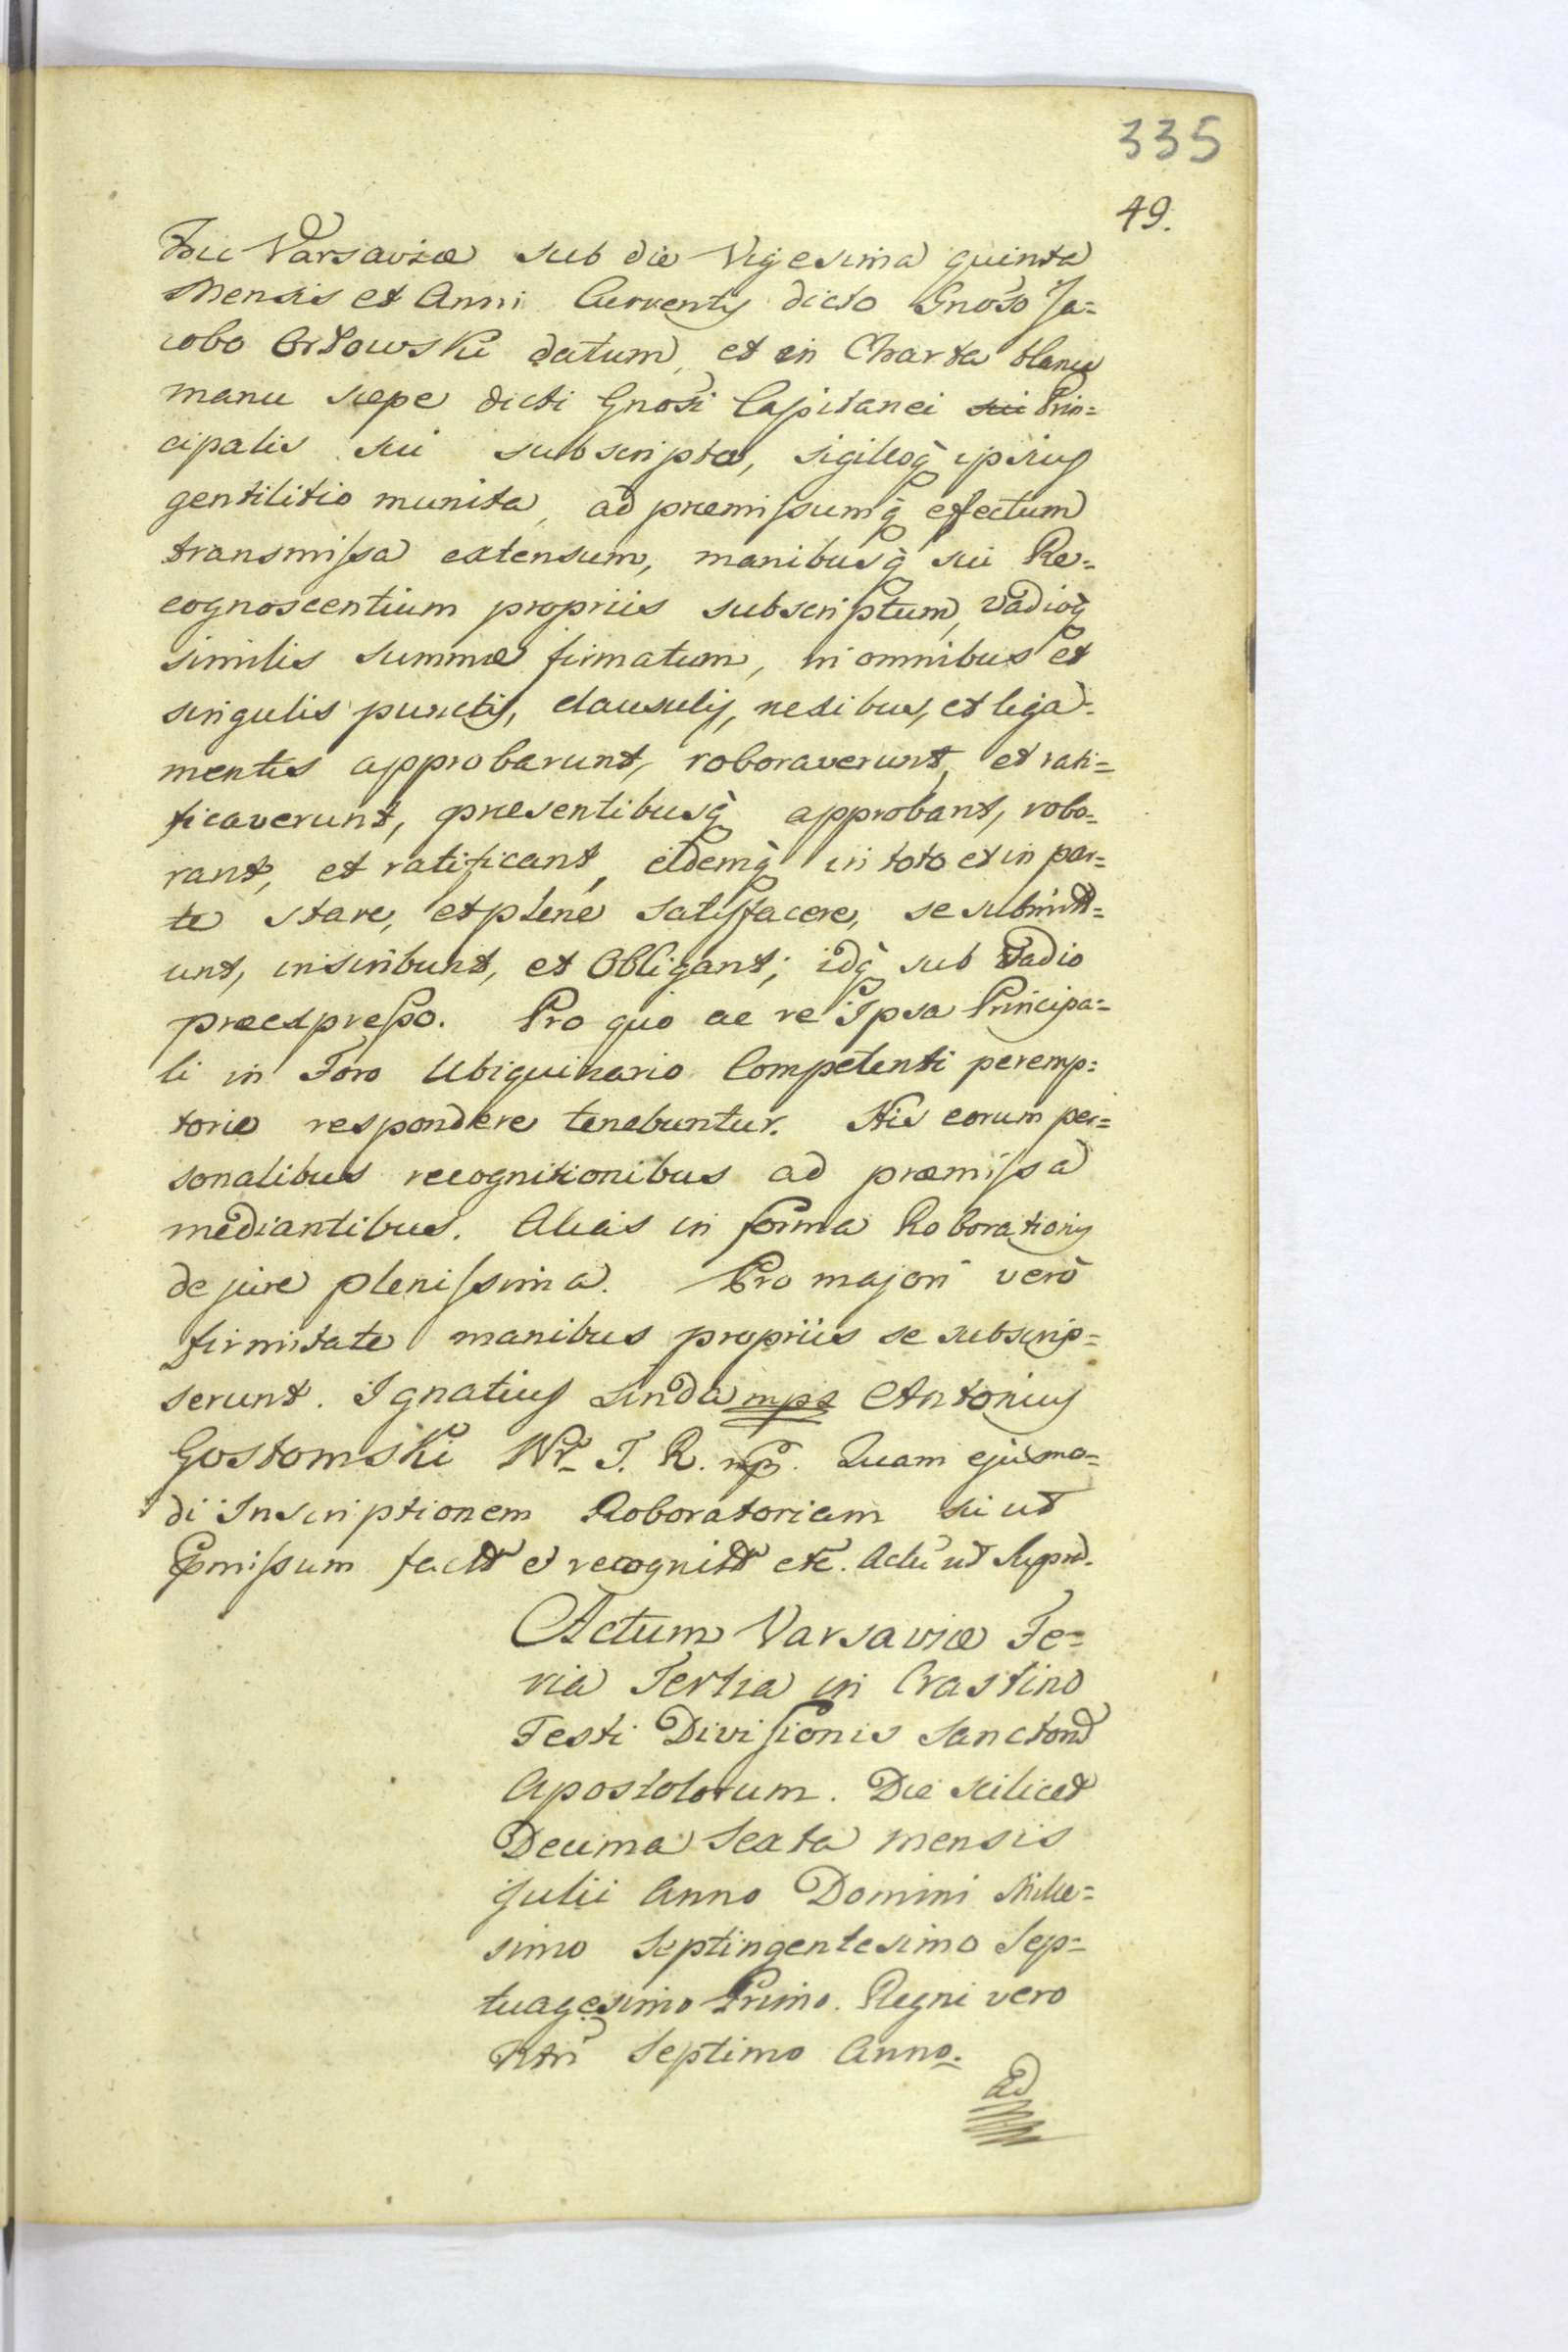 335
49.
Hic Varsaviæ sub die Vigesima quinta
Mensis et Anni Currentis dicto Gnoso Ja=
cobo Orłowski datum, et in Charta blanca
manu sæpe dicti Gnosi Capitanei sui Prin=
cipalis sui subscripta, sigilloq̀ ipsius
gentilitio munita, ad præmissumq̀ effectum
transmissa extensum, manibusq̀ sui Re=
cognoscentium propriis subscriptum, vadioq̀
similis summæ firmatum, in omnibus et
singulis punctis, clausulis, nexibus, et liga=
mentis approbarunt, roboraverunt, et rati=
ficaverunt, præsentibusq̀ approbant, robo=
rant, et ratificant, eidemq̀ in toto et in par=
te stare, et plene satisfacere, se submitt=
unt, inscribunt, et Obligant; idq̀ sub Vadio
præexpresso. Pro quo ac re Ipsa Principa=
li in Foro Ubiquinario Competenti peremp=
torie respondere tenebuntur. His eorum per=
sonalibus recognitionibus ad præmissa
mediantibus. Alias in forma Roborationis
de jure plenissima. Pro majori verò
firmitate manibus propriis se subscrip=
serunt. Ignatius Linda mpa Antonius
Gostomski Wr. T. R. mp. Quam ejusmo=
di Inscriptionem Roboratoriam sicut
Præmissum fact et recognit etc. Actu ut supra.
Actum Varsaviæ Fe=
ria Tertia in Crastino
Festi Divisionis Sanctorum
Apostolorum. Die scilicet
Decima Sexta mensis
Julii Anno Domini Mille=
simo Septingentesimo Sep=
tuagesimo Primo. Regni vero
Ntri Septimo Anno.
Ad